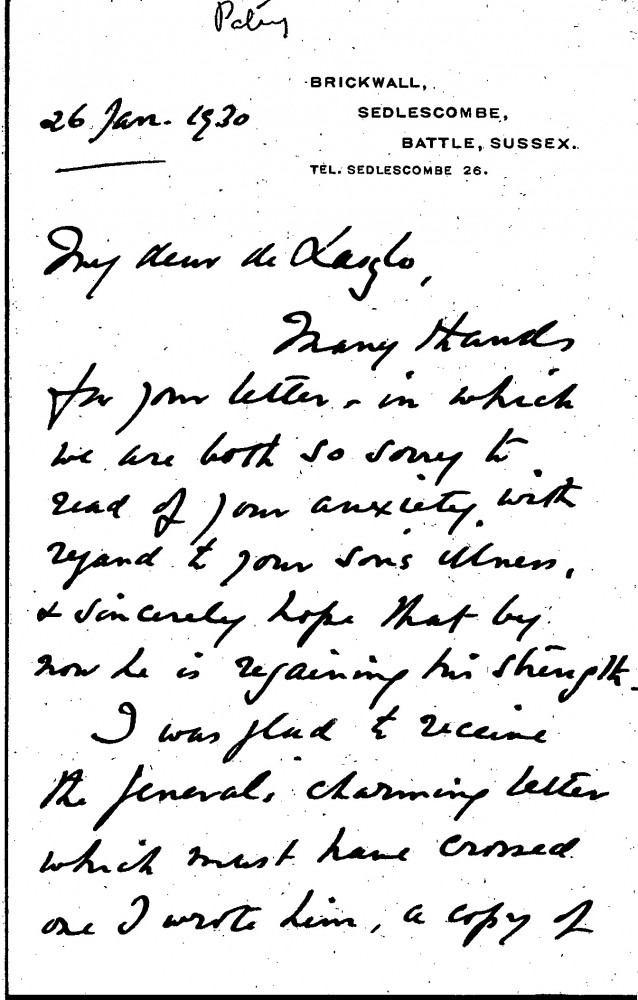 26 Jan. 1930
BRICKWALL,
SEDLESCOMBE,
BATTLE, SUSSEX.
TEL. SEDLESCOMBE 26.
My dear de Laszlo,
Many thanks
for your letter - in which
we are both so sorry to
read of your anxiety with
regard to your son's illness,
& sincerely hope that by
now he is regaining his strength.
I was glad to receive
the General's charming letter
which must have crossed
one I wrote him, a copy of